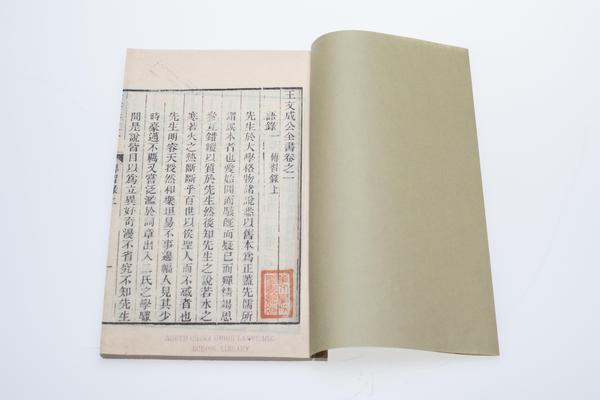 王文成公全書卷之一
語錄一 傳習錄上
先生於大學格物諸說悉以舊本爲正蓋先儒所
謂誤本者也愛始聞而駭旣而疑已而殫精竭思
參互錯縱以質於先生然後知先生之說若水之
寒若火之熱斷斷乎百世以俟聖人而不惑者也
先生明睿天授然和樂坦易不事邊幅人見其少
時豪邁不羈又嘗泛濫於詞章出入二氏之學驟
聞是說皆目以爲立異好奇漫不省究不知先生
SOUTH CHINA UNION LANGUAGE
SCHOOL LIBRARY